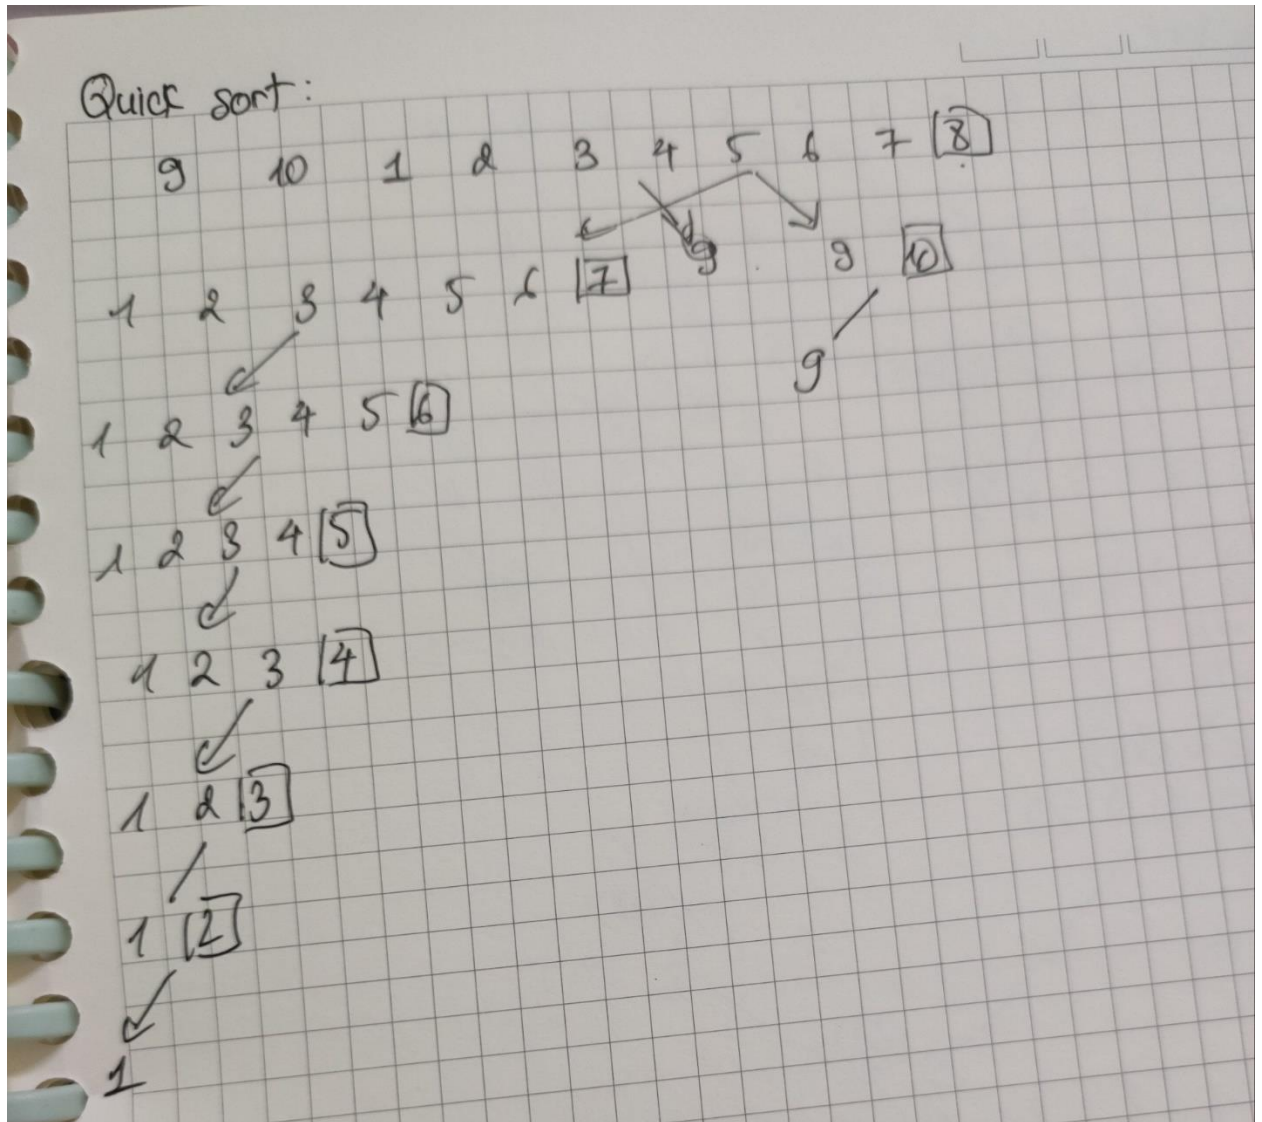 Quick sort:
9 10 1 2 3 4 5 6 7 8
1 2 3 4 5 6 7 9 9 10
9
1 2 3 4 5 6
1 2 3 4 5
1 2 3 4
1 2 3
1 2
1